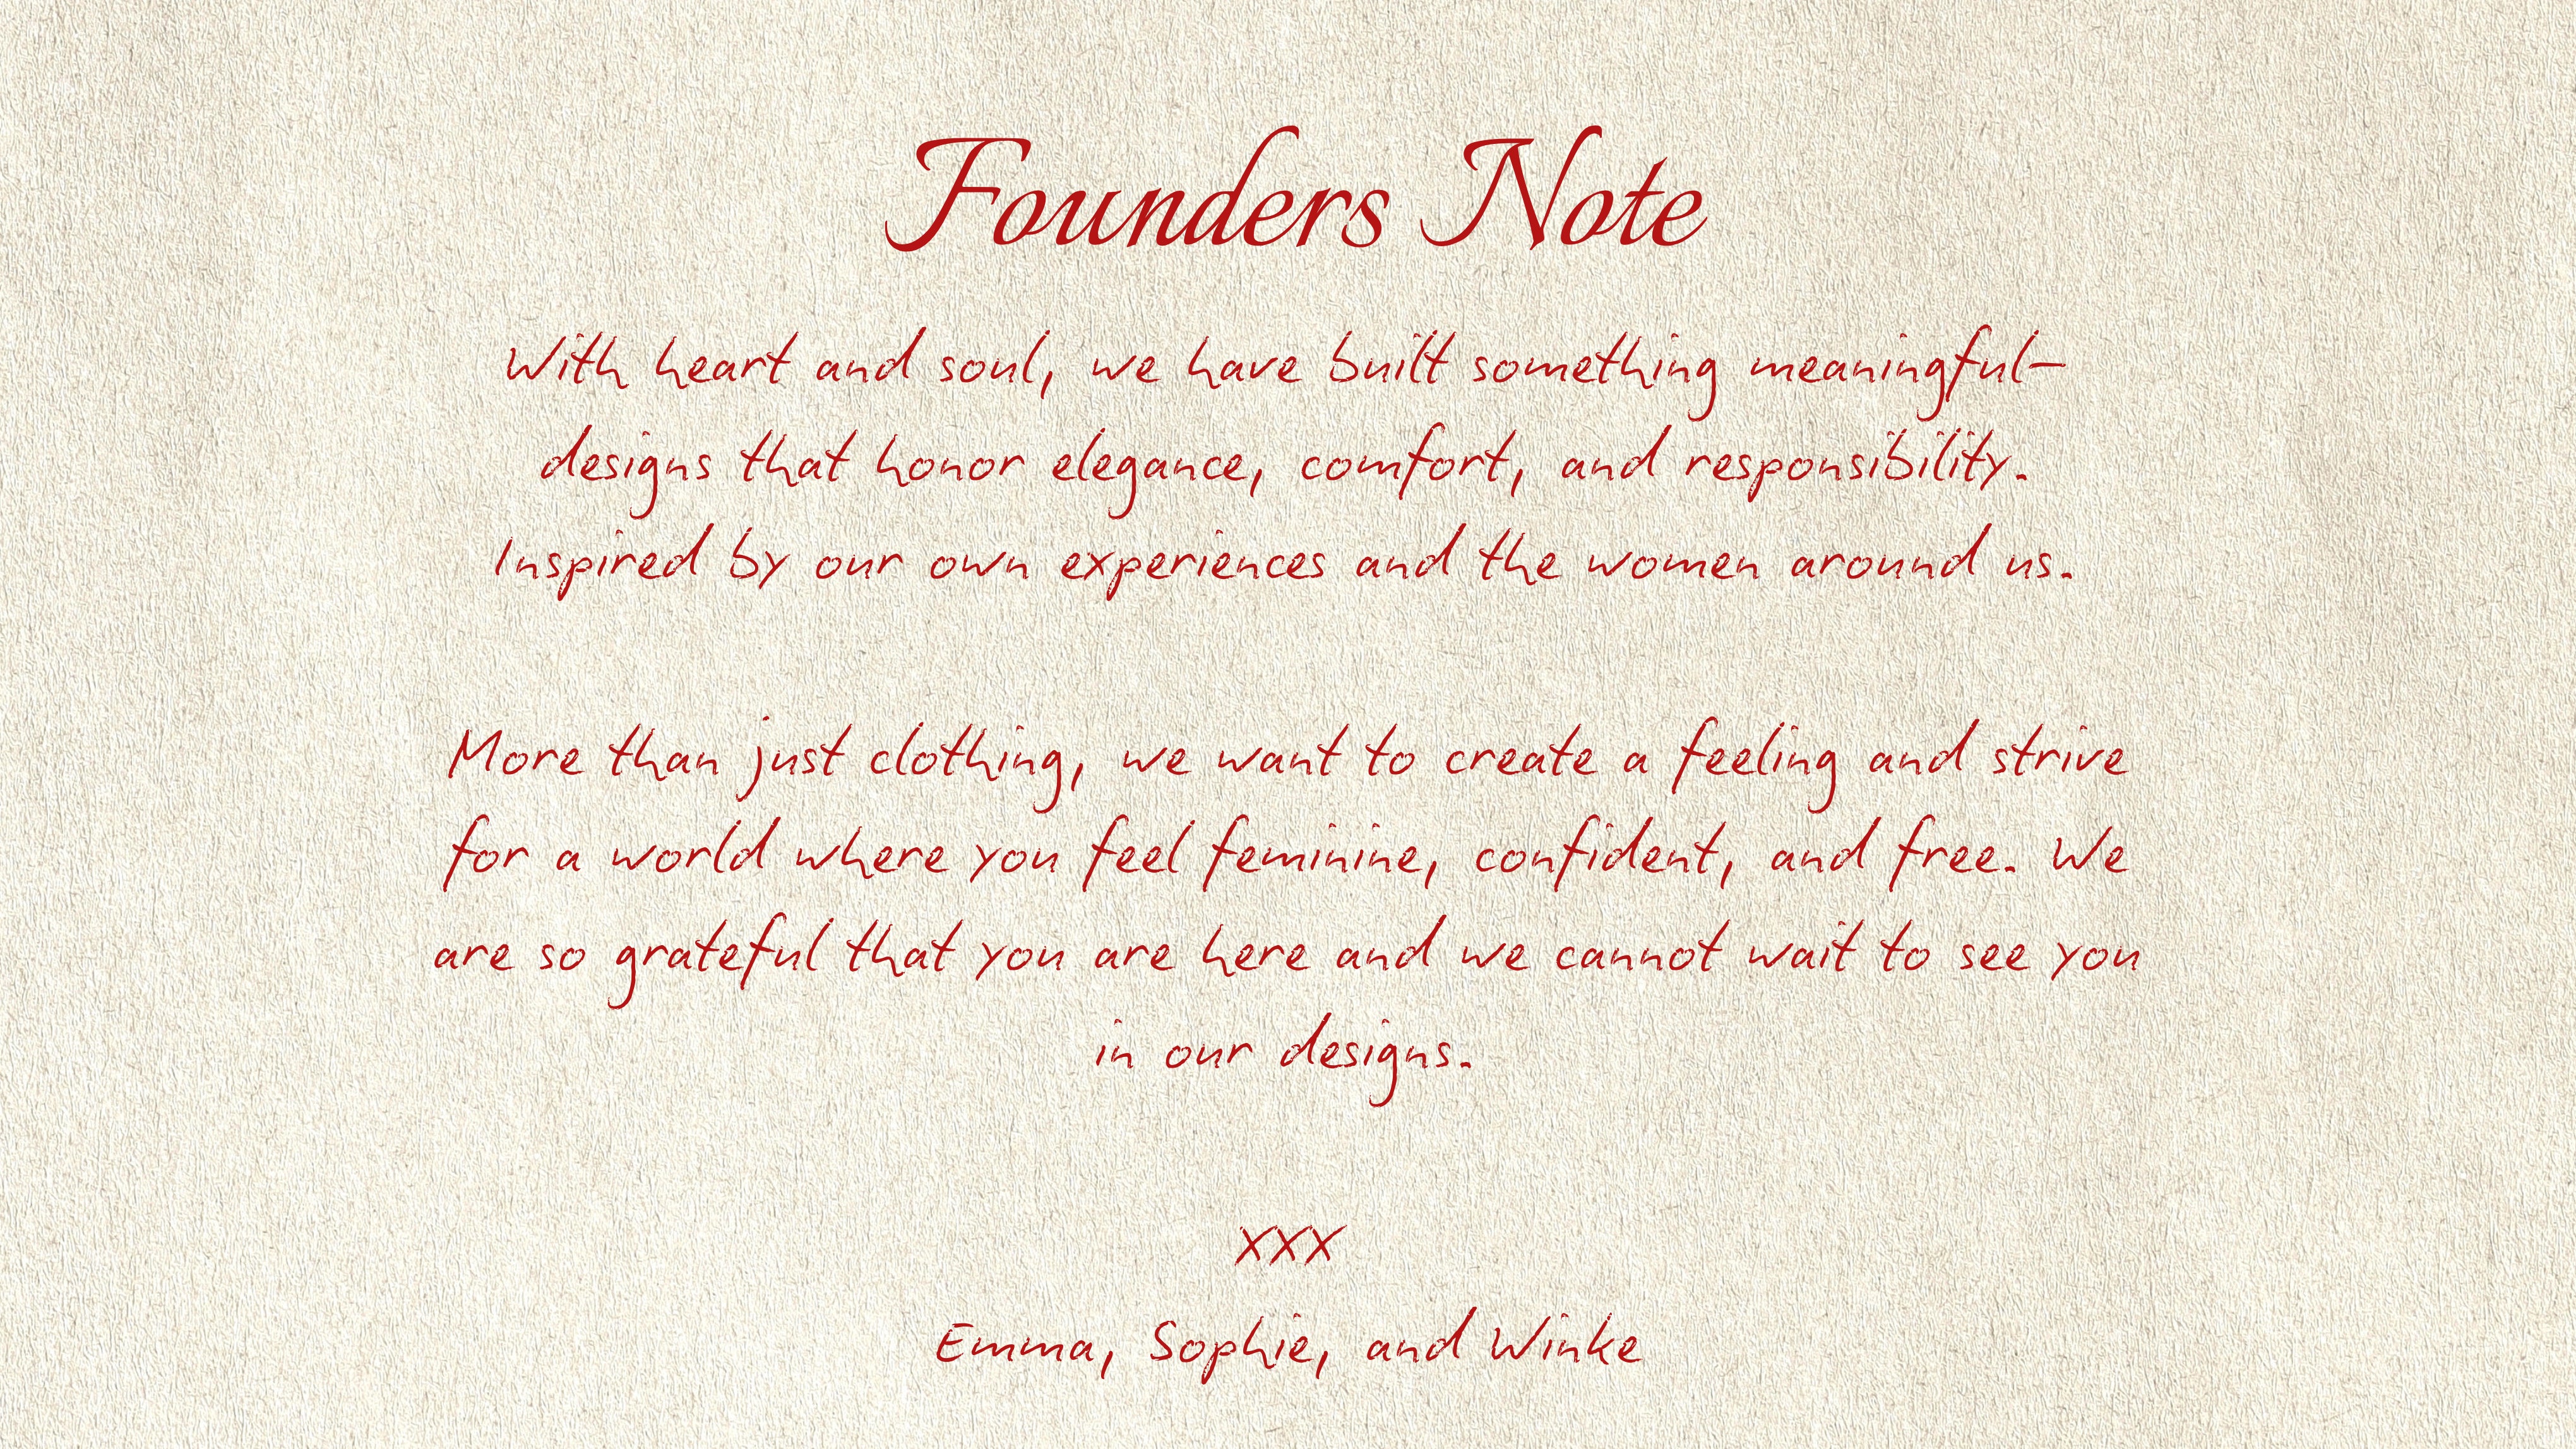 Founders Note
With heart and soul, we have built something meaningful—
designs that honor elegance, comfort, and responsibility.
Inspired by our own experiences and the women around us.
More than just clothing, we want to create a feeling and strive
for a world where you feel feminine, confident, and free. We
are so grateful that you are here and we cannot wait to see you
in our designs.
xxx
Emma, Sophie, and Winke